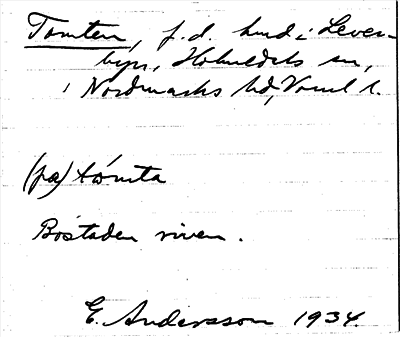 Tomten, f.d. lund i Lever-
byn, Holmedals sn,
Nordmarks hd, Värml l.
(på) tómta
Bostaden riven.
E. Andersson 1934.